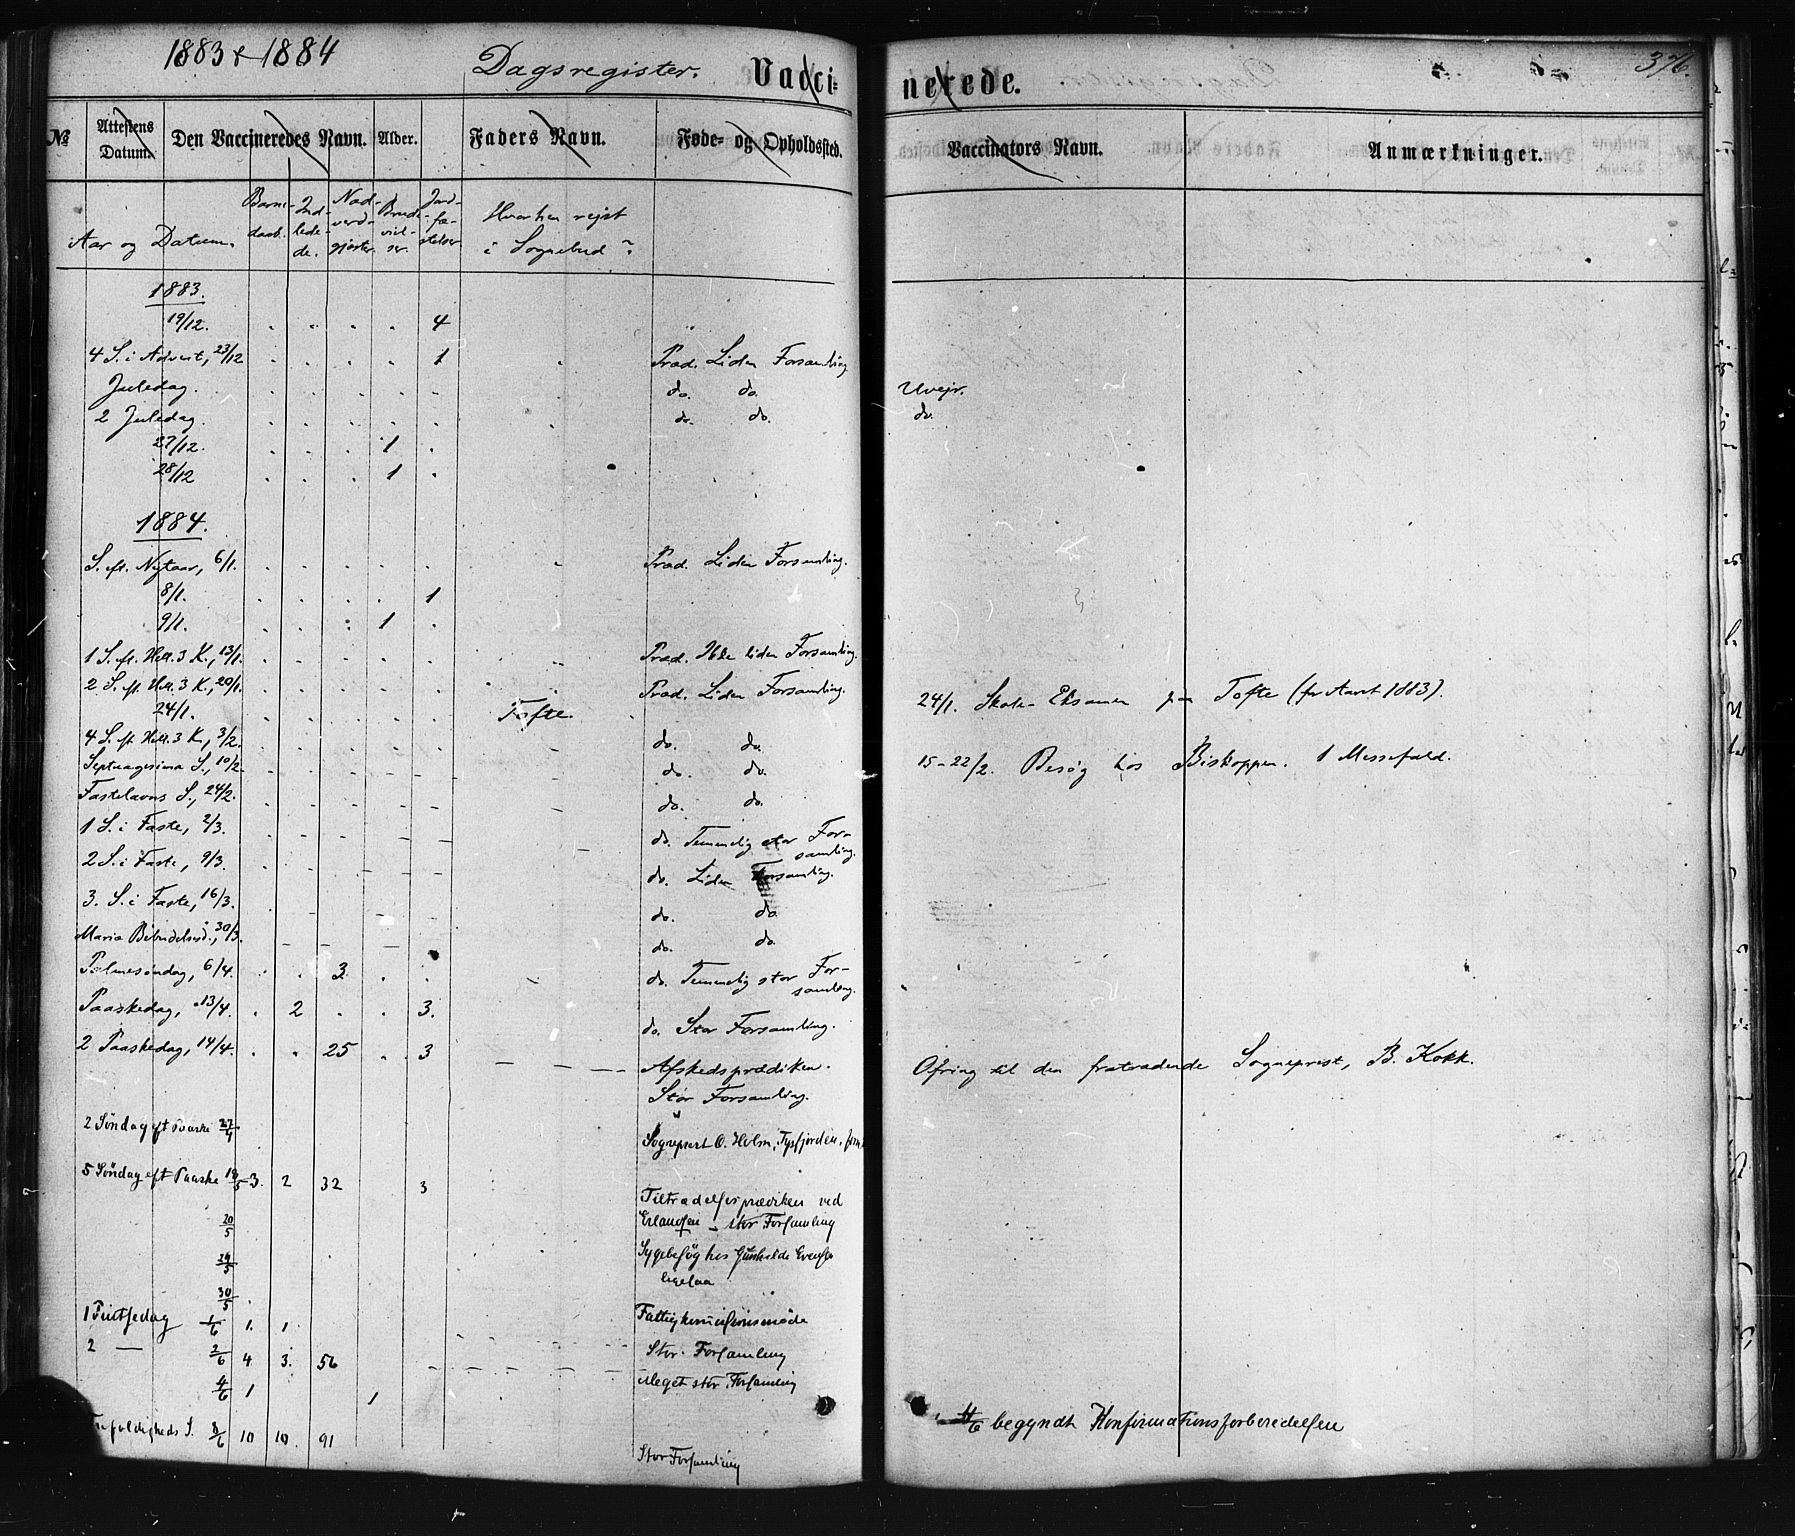 1883 & 1884 Dagsregister. Vacci= nerede. 376.
№ Attestens Datum. Den Vaccineredes Navn. Alder. Faders Navn. Føde- og Opholdssted. Vaccinators Navn. Anmærkninger.
Aar og Datum. Barnedaab. Indledede. Nadverdgjæster. Brudevielser. Jordfæstelser. Hvorhen rejst i Sognebud?
1883.
19/12. . . . . 4
4 S. i Advent, 23/12 . . . . 1 Præd. Liden Forsamling
Juledag. . . . . . do. do. Uvejr.
2 Juledag. . . . . . do. do. do.
27/12. . . . 1 .
28/12 . . . 1 .
1884.
S. eft. Nytaar, 6/1. . . . . . Præd. Liden Forsamling.
8/1. . . . . 1
9/1. . . . 1 .
1 S. eft. Hell. 3 K., 13/1. . . . . . Præd. liden Forsamling.
2 S. eft. Hell. 3 K., 20/1. . . . . . Præd. Liden Forsamling.
24/1. . . . . . Tofte. 24/1. Skole-Eksamen paa Tofte (for Aaret 1883).
4 S. eft. Hell. 3 K., 3/2. . . . . . do. do.
Septuagesima S., 10/2. do. do. 15-22/2. Besøg hos Biskoppen. 1 Messefald.
Fastelavns S., 24/2. do. do.
1 S. i Faste, 2/3. do. Temmelig stor Forsamling.
2 S. i Faste, 9/3. do. Liden Forsamling.
3. S. i Faste, 16/3. do. do
Maria Bebudelsesd., 30/3. do. do.
Palmesøndag, 6/4. . . 3. . . do. Temmelig stor Forsamling.
Paaskedag, 13/4. . 2 . . 3. do. Stor Forsamling.
2 Paaskedag, 14/4. . . 25 . . 3 Afskedsprædiken. Ofring til den fratrædende Sogneprest, B. Kokk.
Stor Forsamling.
2 Søndag eft Paaske 27/4 Sogneprest O. Holm, Tysfjorden,
5 Søndag eft Paaske 18/5 3. 2 32 3 Tiltrædelsesprædiken ved
20/5 Erlandsen - stor Forsamling
24/5 Sygebesøg hos
ligesaa
30/5
1 Pintsedag 1/6 1. 1. Fattigkommissionsmøde
2 — 2/6 4 3. 56 Stor Forsamling
4/6 1 1 Meget stor Forsamling
8/6 10 10. 91 4/6 begyndt Konfirmationsforberedelsen
Stor Forsamling